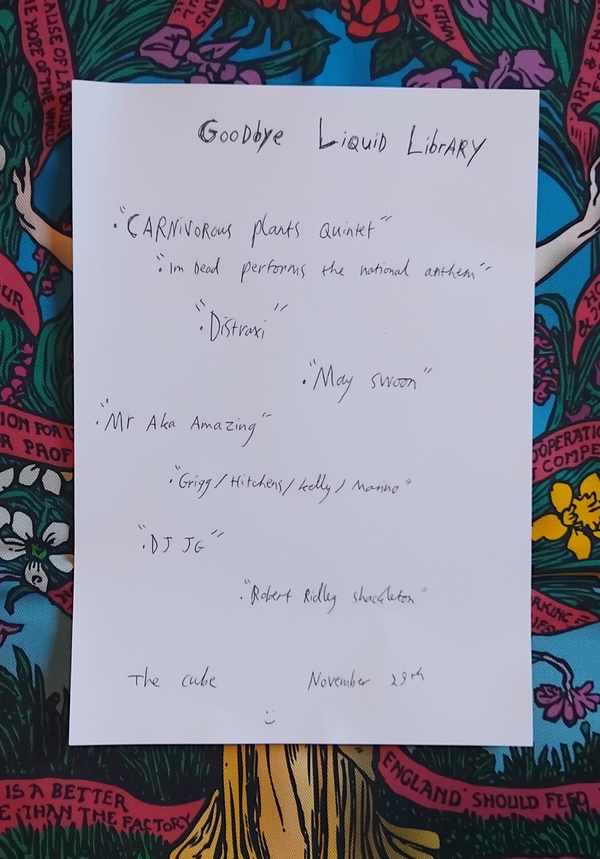 GOODbye LIQUID LIBrARY
• "CARNiVOROUS plants Quintet"
• "Im Dead performs the national anthem"
• "Distraxi"
• "May swoon"
• "Mr Aka Amazing"
• "Grigg / Hitchens / kelly / Manno"
• "DJ JG"
• "Robert Ridley shackleton"
The cube November 29th
:)
ALISE OF LABOUR
THE HOPE OF THE WORLD
WHEN
ART & EN
OUR
ION FOR
R PROF
OOPERATI
COMPE
RKING
IS A BETTER
THAN THE FACTORY
ENGLAND SHOULD FEED